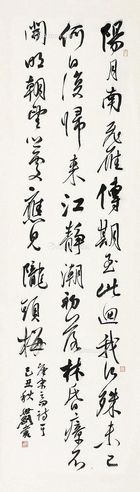 陽月南飛雁傳聞至此回我行殊未已
何日復歸來江靜潮初落林昏瘴不
開明朝望鄉處應見隴頭梅